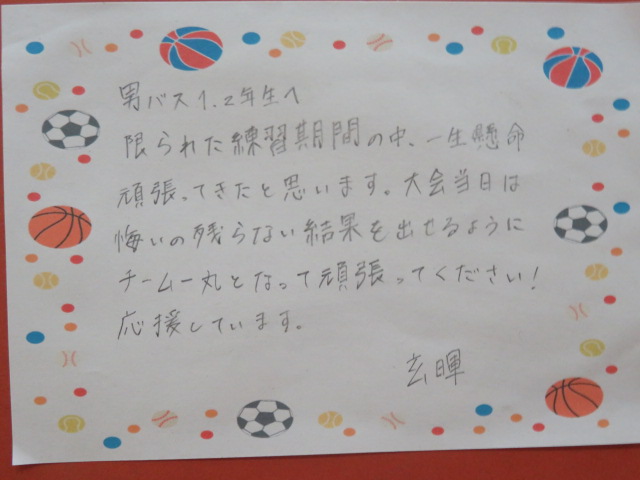 男バス1.2年生へ
限られた練習期間の中、一生懸命
頑張ってきたと思います。大会当日は
悔いの残らない結果を出せるように
チーム一丸となって頑張ってください!
応援しています。
玄暉